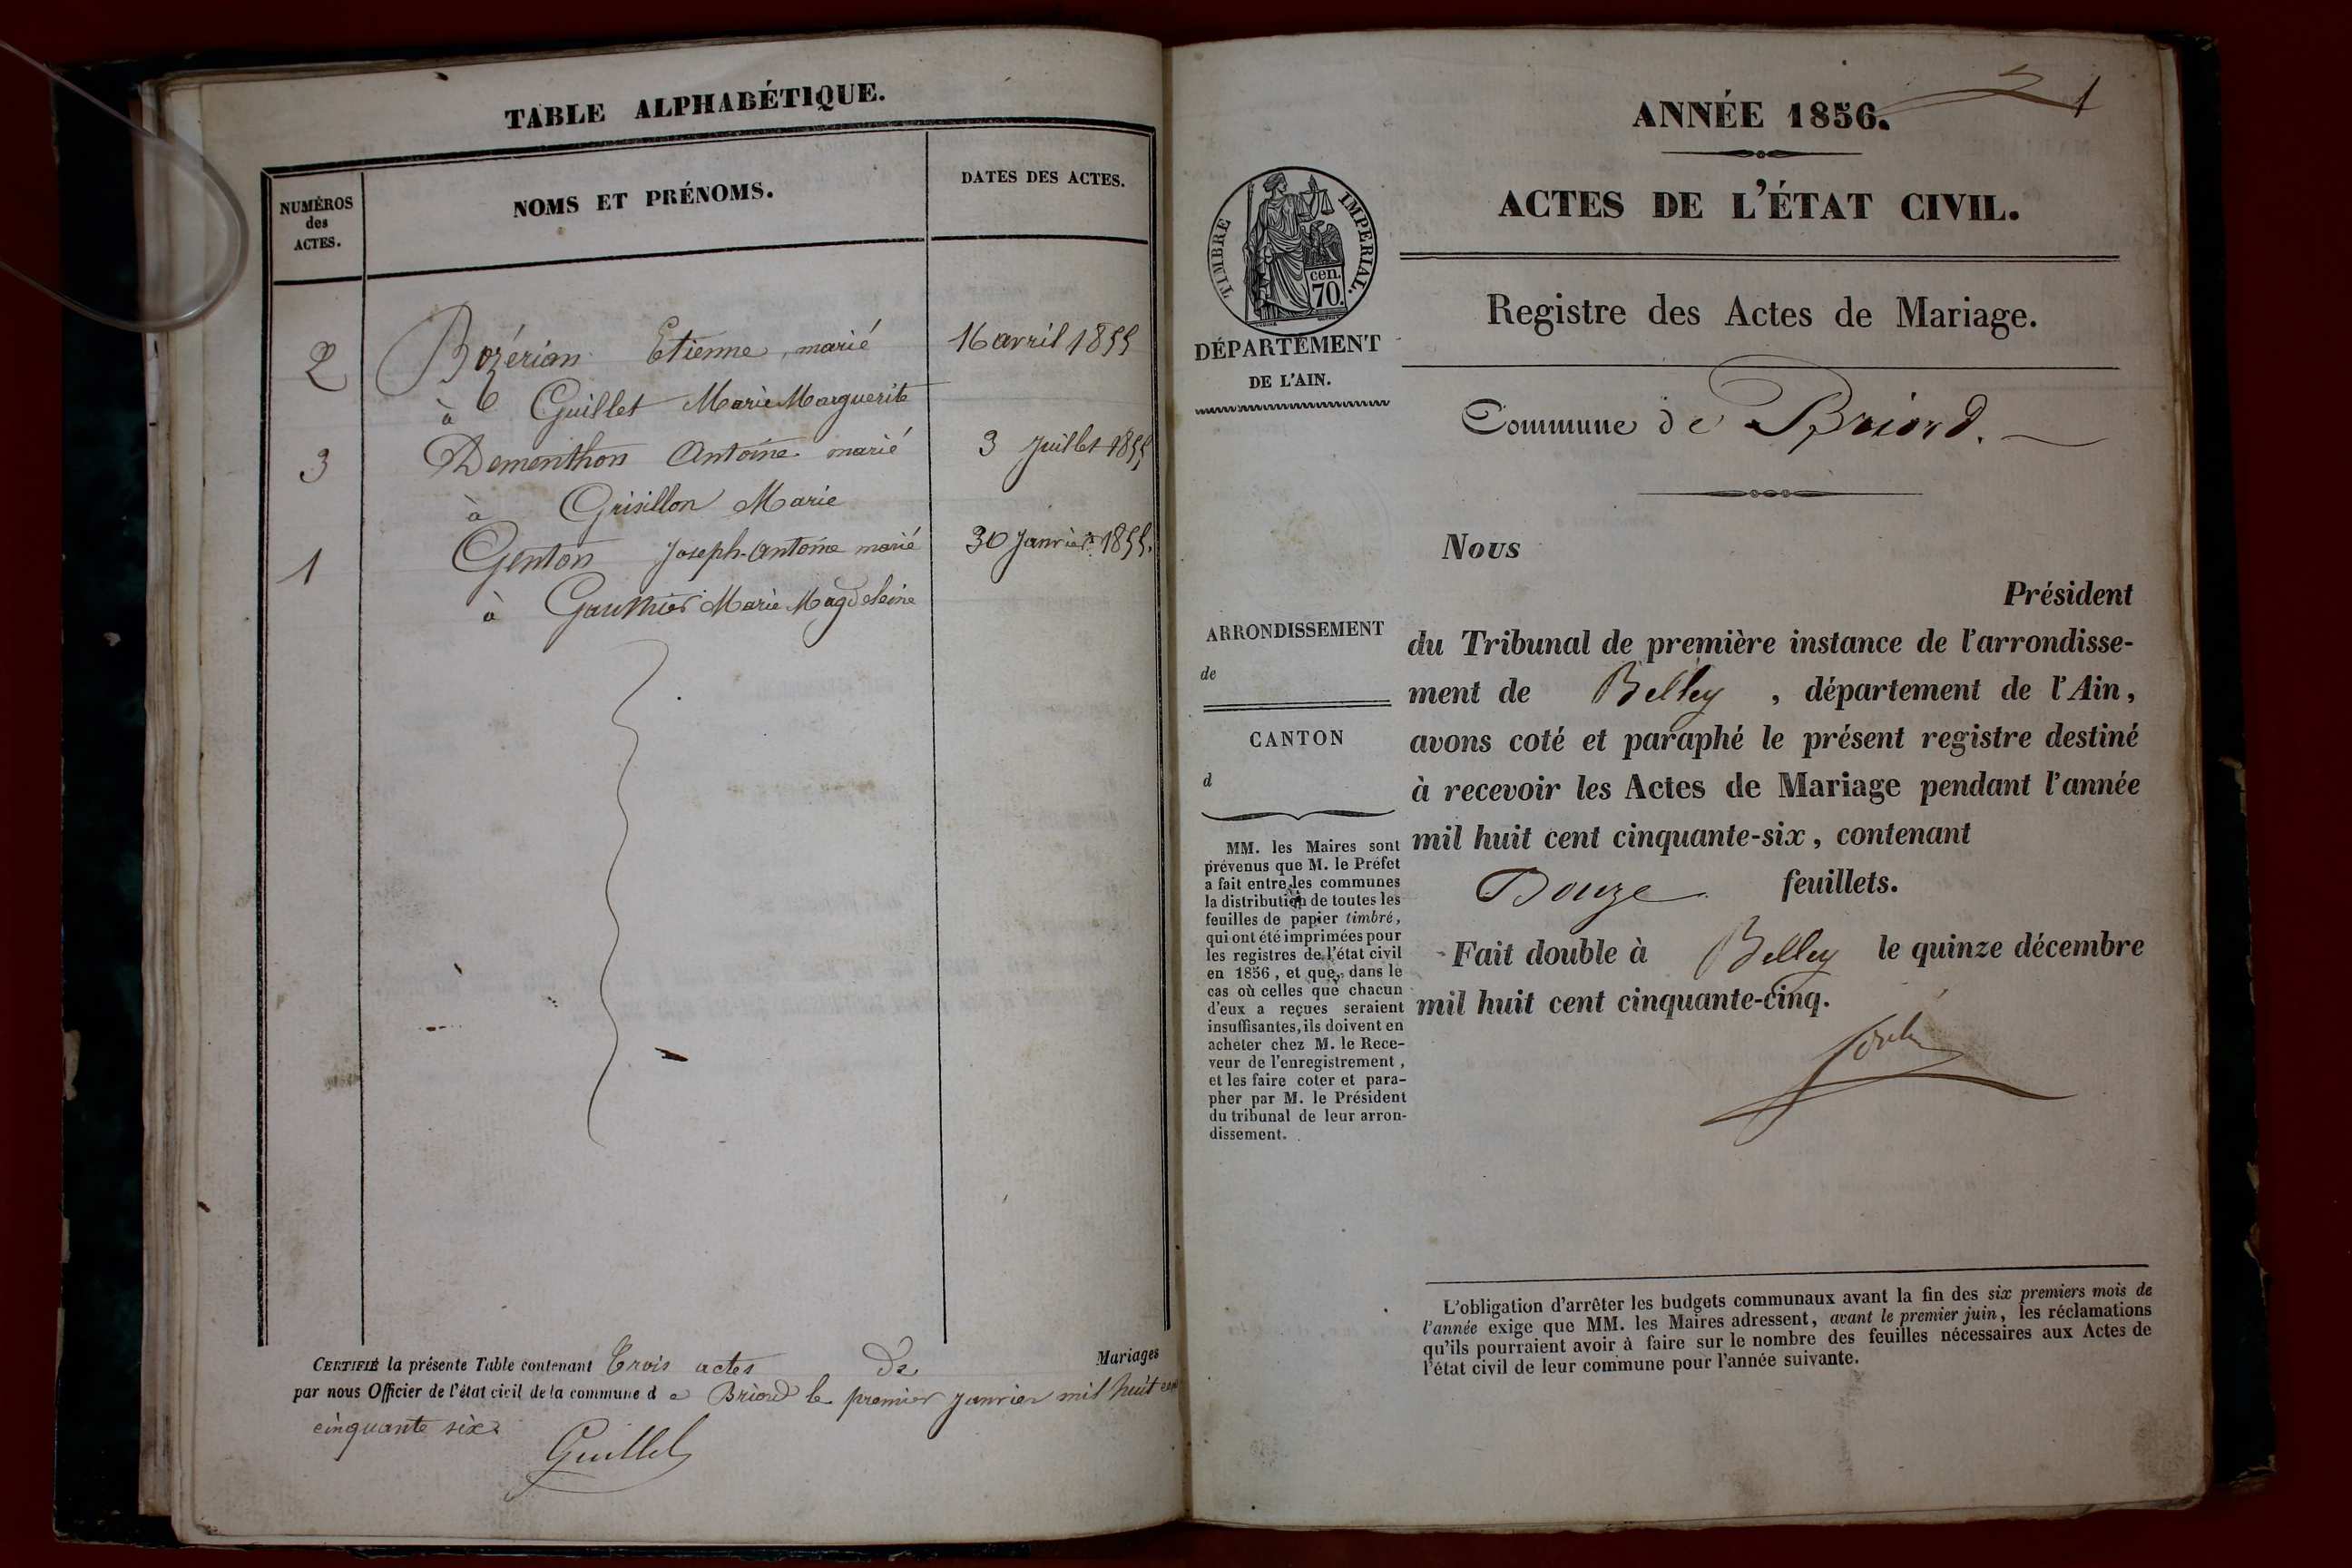 TABLE ALPHABÉTIQUE.
NUMÉROS
des
ACTES.
NOMS ET PRÉNOMS.
DATES DES ACTES.
2 Bozérian Etienne, marié 16 avril 1855
à Guillet Marie Marguerite
3 Dementhon Antoine marié 3 Juillet 1855
à Grisillon Marie
1 Genton Joseph-Antoine marié 30 Janvier 1855.
à Gauthier Marie Magdeleine
CERTIFIÉ la présente Table contenant Trois actes de Mariages
par nous Officier de l'état civil de la commune d e Briord le premier Janvier mil huit cent
cinquante six.
Guillet
1
ANNÉE 1856.
ACTES DE L'ÉTAT CIVIL.
TIMBRE IMPERIAL.
cen.
70.
DÉPARTEMENT
DE L'AIN.
Registre des Actes de Mariage.
Commune de Briord.
ARRONDISSEMENT
de
CANTON
d
MM. les Maires sont
prévenus que M. le Préfet
a fait entre les communes
la distribution de toutes les
feuilles de papier timbré,
qui ont été imprimées pour
les registres de l'état civil
en 1856, et que, dans le
cas où celles que chacun
d'eux a reçues seraient
insuffisantes, ils doivent en
acheter chez M. le Rece-
veur de l'enregistrement,
et les faire coter et para-
pher par M. le Président
du tribunal de leur arron-
dissement.
Nous
Président
du Tribunal de première instance de l'arrondisse-
ment de Belley, département de l'Ain,
avons coté et paraphé le présent registre destiné
à recevoir les Actes de Mariage pendant l'année
mil huit cent cinquante-six, contenant
Douze feuillets.
Fait double à Belley le quinze décembre
mil huit cent cinquante-cinq.
L'obligation d'arrêter les budgets communaux avant la fin des six premiers mois de
l'année exige que MM. les Maires adressent, avant le premier juin, les réclamations
qu'ils pourraient avoir à faire sur le nombre des feuilles nécessaires aux Actes de
l'état civil de leur commune pour l'année suivante.